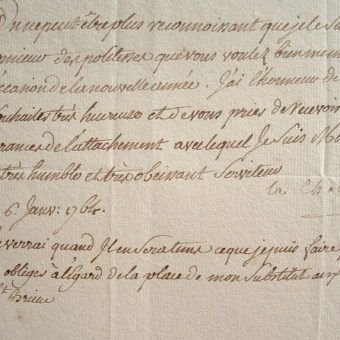 On ne peut être plus reconnoissant que je le Su
Monsieur des politesses que vous voulez bien me
occasion de la nouvelle année. J'ai l'honneur de
souhaiter très heureuse et de vous prier de recevoir
rances de l'attachement avec lequel Je Suis Mo
très humble et très obéissant Serviteur
La Ch
6. Janv. 1764.
verrai quand Il en Sera tems ce que je puis faire p
obliger à l'Egard de la place de mon Substitut au